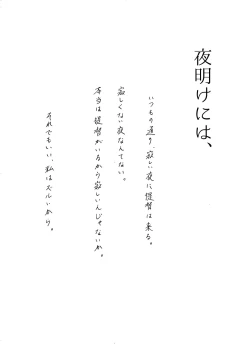 夜明けには、
いつもの通り、寂しい夜に提督は来る。
寂しくない夜なんてない。
本当は提督がいるから寂しいんじゃないか。
それでもいい、私はズルいから。